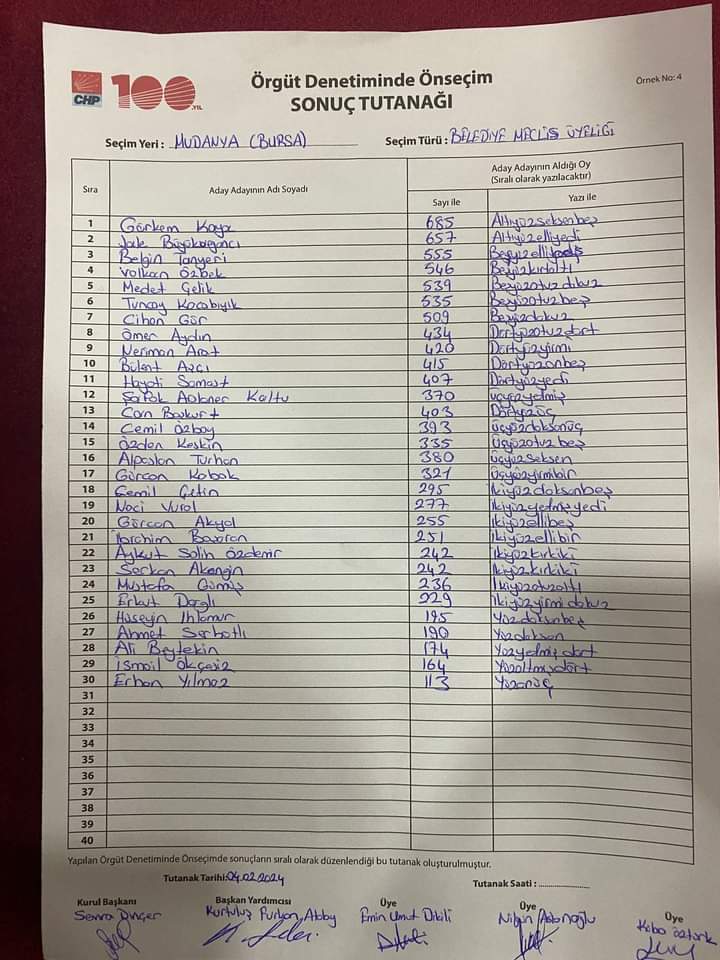 CHP 100.YIL
Örgüt Denetiminde Önseçim
SONUÇ TUTANAĞI
Örnek No: 4
Seçim Yeri : MUDANYA (BURSA) Seçim Türü : BELEDİYE MECLİS ÜYELİĞİ
Sıra Aday Adayının Adı Soyadı Aday Adayının Aldığı Oy
(Sıralı olarak yazılacaktır)
Sayı ile Yazı ile
1 Görkem Kaya 685 Altıyüzseksenbeş
2 Jale 657 Altıyüzelliyedi
3 Belgin Tanyeri 555
4 Volkan Özbek 546 Beşyüzkırkaltı
5 Medet Çelik 539 Beşyüzotuzdokuz
6 Tuncay Kocabıyık 535 Beşyüzotuzbeş
7 Cihan Gür 509 Beşyüzdokuz
8 Ömer Aydın 434 Dörtyüzotuzdört
9 Neriman Arat 420 Dörtyüzyirmi
10 Bülent Avcı 415 Dörtyüzonbeş
11 Hayati Samast 407 Dörtyüzyedi
12 Kaltu 370 üçyüzyetmiş
13 Can Bozkurt 403 Dörtyüzüç
14 Cemil Özbay 393 üçyüzdoksanüç
15 Özden Keskin 335 üçyüzotuzbeş
16 Alpaslan Turhan 380 üçyüzseksen
17 Gürcan Kabak 321 üçyüzyirmibir
18 Cemil Çetin 295 ikiyüzdoksanbeş
19 Naci Vural 277 ikiyüzyetmişyedi
20 Gürcan Akyol 255 ikiyüzellibeş
21 İbrahim Başaran 251 ikiyüzellibir
22 Aykut Salih Özdemir 242 ikiyüzkırkiki
23 Serkan Akengin 242 ikiyüzkırkiki
24 Mustafa Gümüş 236 ikiyüzotuzaltı
25 Erkut Dağlı 229 ikiyüzyirmidokuz
26 Hüseyin Ihlamur 195 Yüzdoksanbeş
27 Ahmet Serbatlı 190 Yüzdoksan
28 Ali Beytekin 174 Yüzyetmişdört
29 İsmail Ökçesiz 164 Yüzaltmışdört
30 Erhan Yılmaz 113 Yüzonüç
31
32
33
34
35
36
37
38
39
40
Yapılan Örgüt Denetiminde Önseçimde sonuçların sıralı olarak düzenlendiği bu tutanak oluşturulmuştur.
Tutanak Tarihi: 04.02.2024 Tutanak Saati : ..................
Kurul Başkanı Başkan Yardımcısı Üye Üye Üye
Semra Dinçer Kurtuluş Furkan Emin Umut Dikili Nilgün Kibo Öztürk